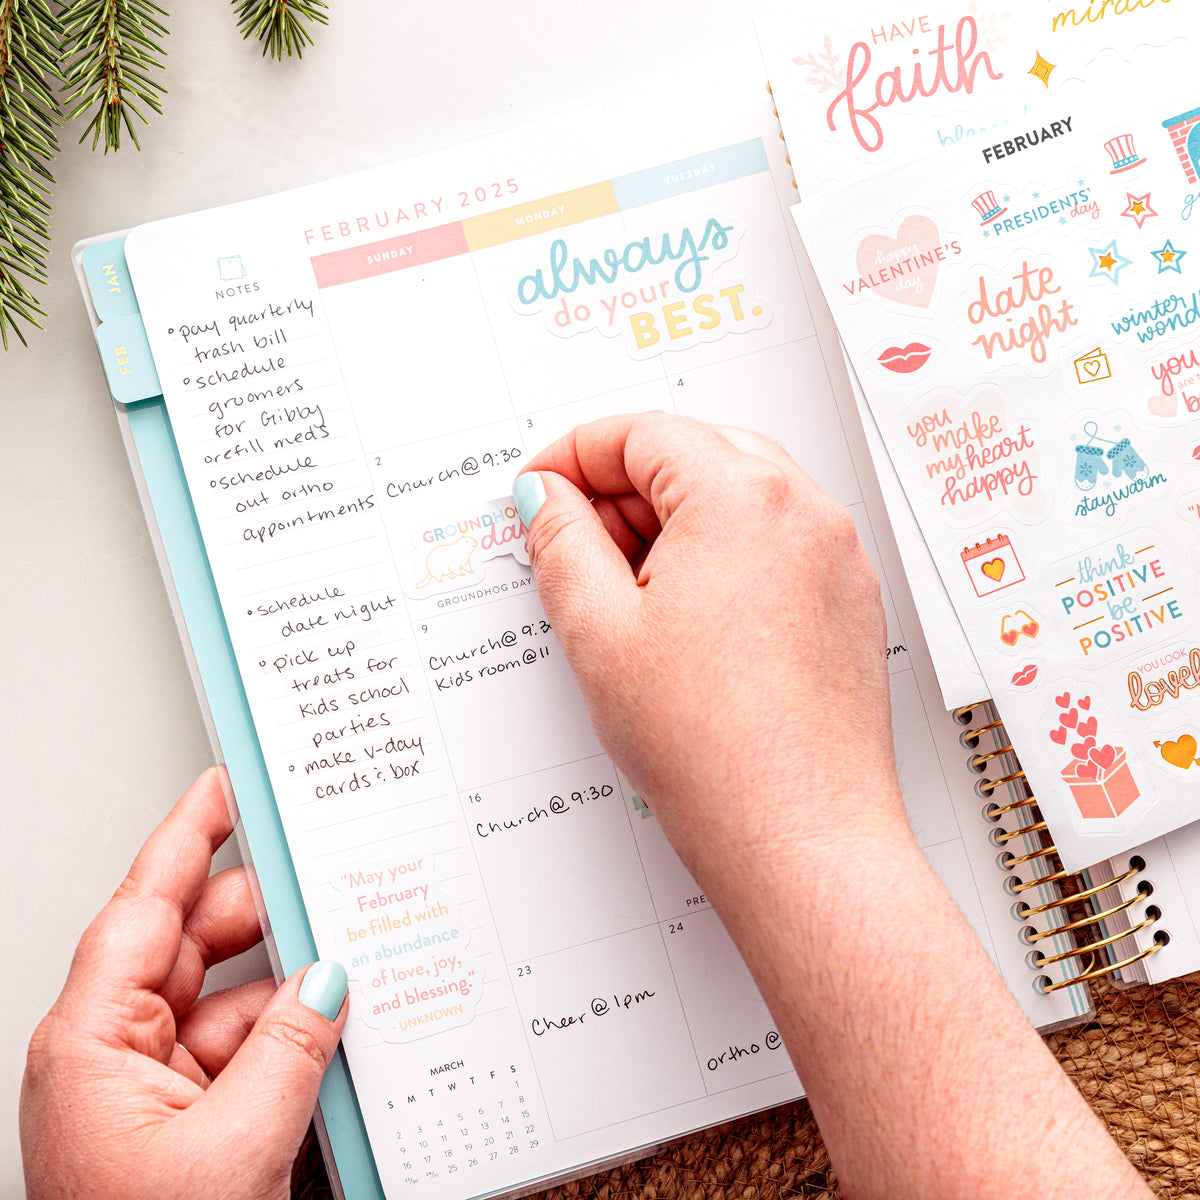 FEBRUARY 2025
SUNDAY
MONDAY
TUESDAY
JAN
FEB
NOTES
pay quarterly
trash bill
schedule
groomers
for Gibby
refill meds
schedule
out ortho
appointments
schedule
date night
pick up
treats for
kids school
parties
make v-day
cards & box
"May your
February
be filled with
an abundance
of love, joy,
and blessing."
- UNKNOWN
MARCH
S M T W T F S
1
2 3 4 5 6 7 8
9 10 11 12 13 14 15
16 17 18 19 20 21 22
23/30 24/31 25 26 27 28 29
always
do your
BEST.
2
Church@9:30
GROUNDHOG
day
GROUNDHOG DAY
3
4
9
Church@ 9:30
Kids room@11
pm
16
Church@9:30
23
Cheer@1pm
24
ortho@
HAVE
faith
FEBRUARY
PRESIDENTS'
day
happy
VALENTINE'S
day
date
night
winter
you
are
you
make
my heart
happy
stay warm
think
POSITIVE
be
POSITIVE
YOU LOOK